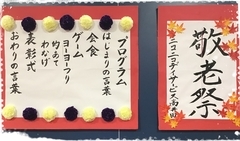 敬老祭
ニコニコデイサービス南井田
プログラム
はじまりの言葉
会食
ゲーム
ヨーヨーつり
的あて
わなげ
表彰式
おわりの言葉